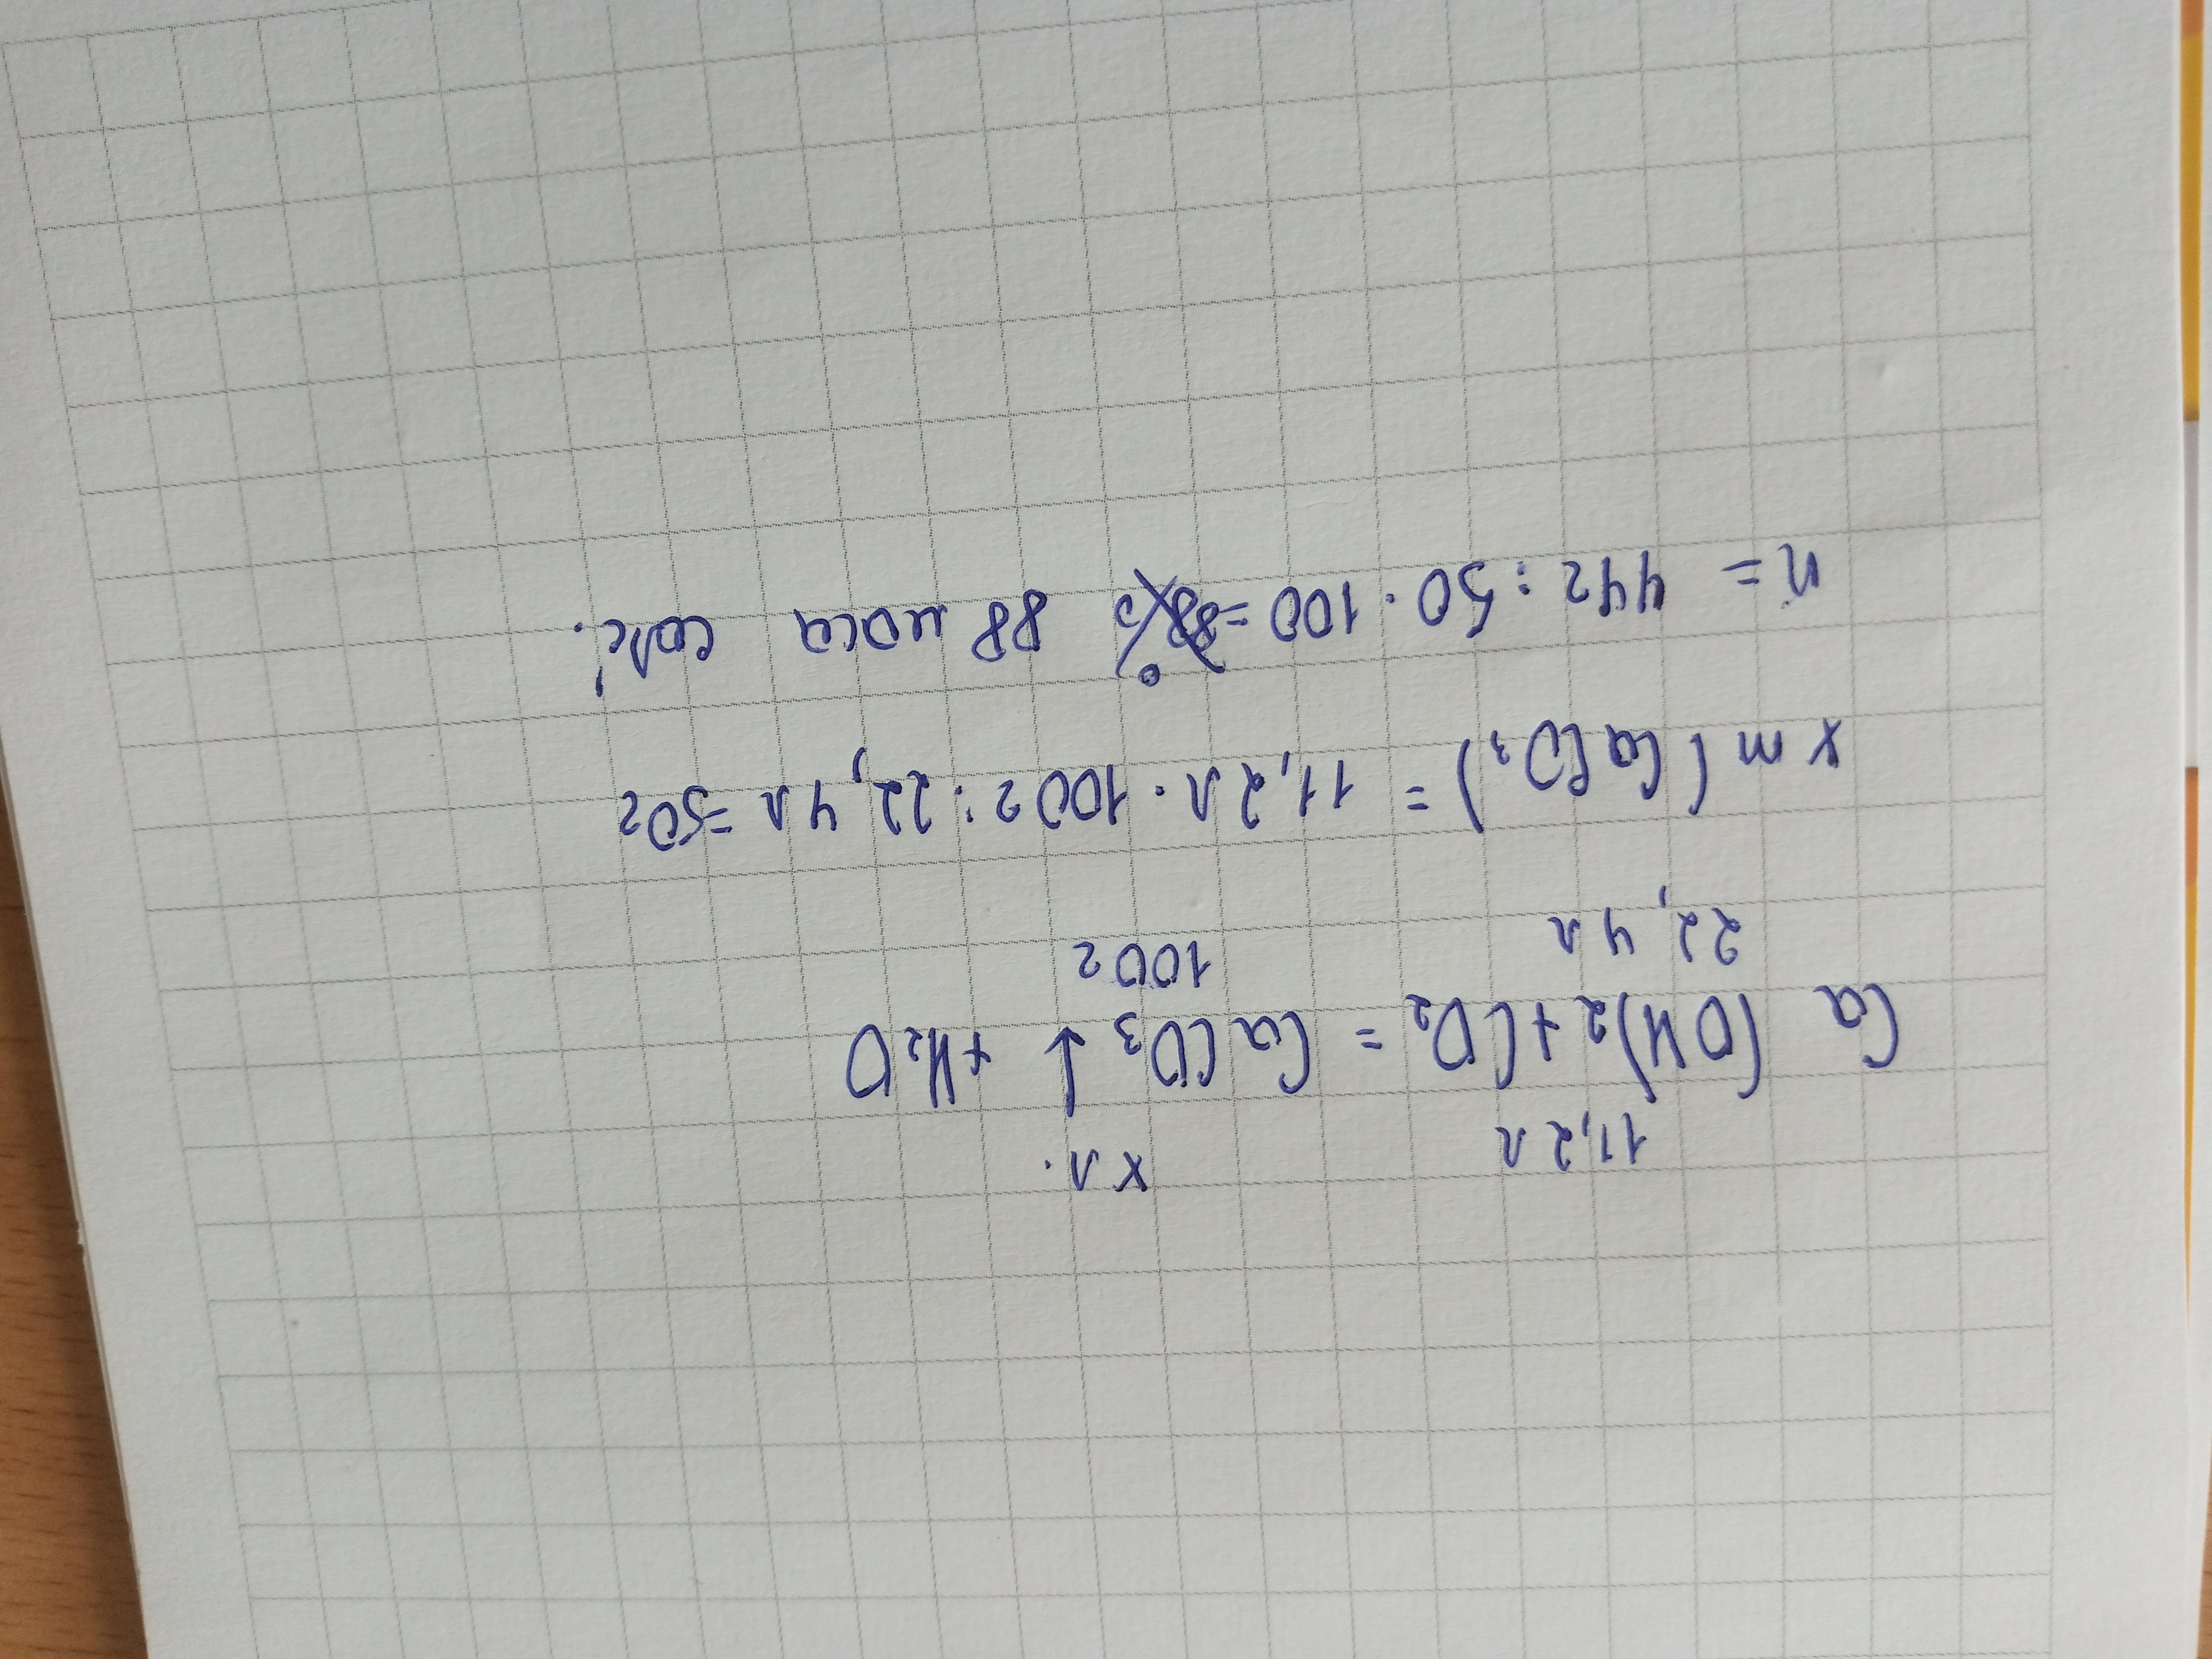 11,2 л x л.
Ca (OH)2 + CO2 = CaCO3 ↓ + H2O
22,4 л 100г
x m (CaCO3) = 11,2 л · 100г : 22,4 л = 50г
n = 44г : 50 · 100 = 88 соле.